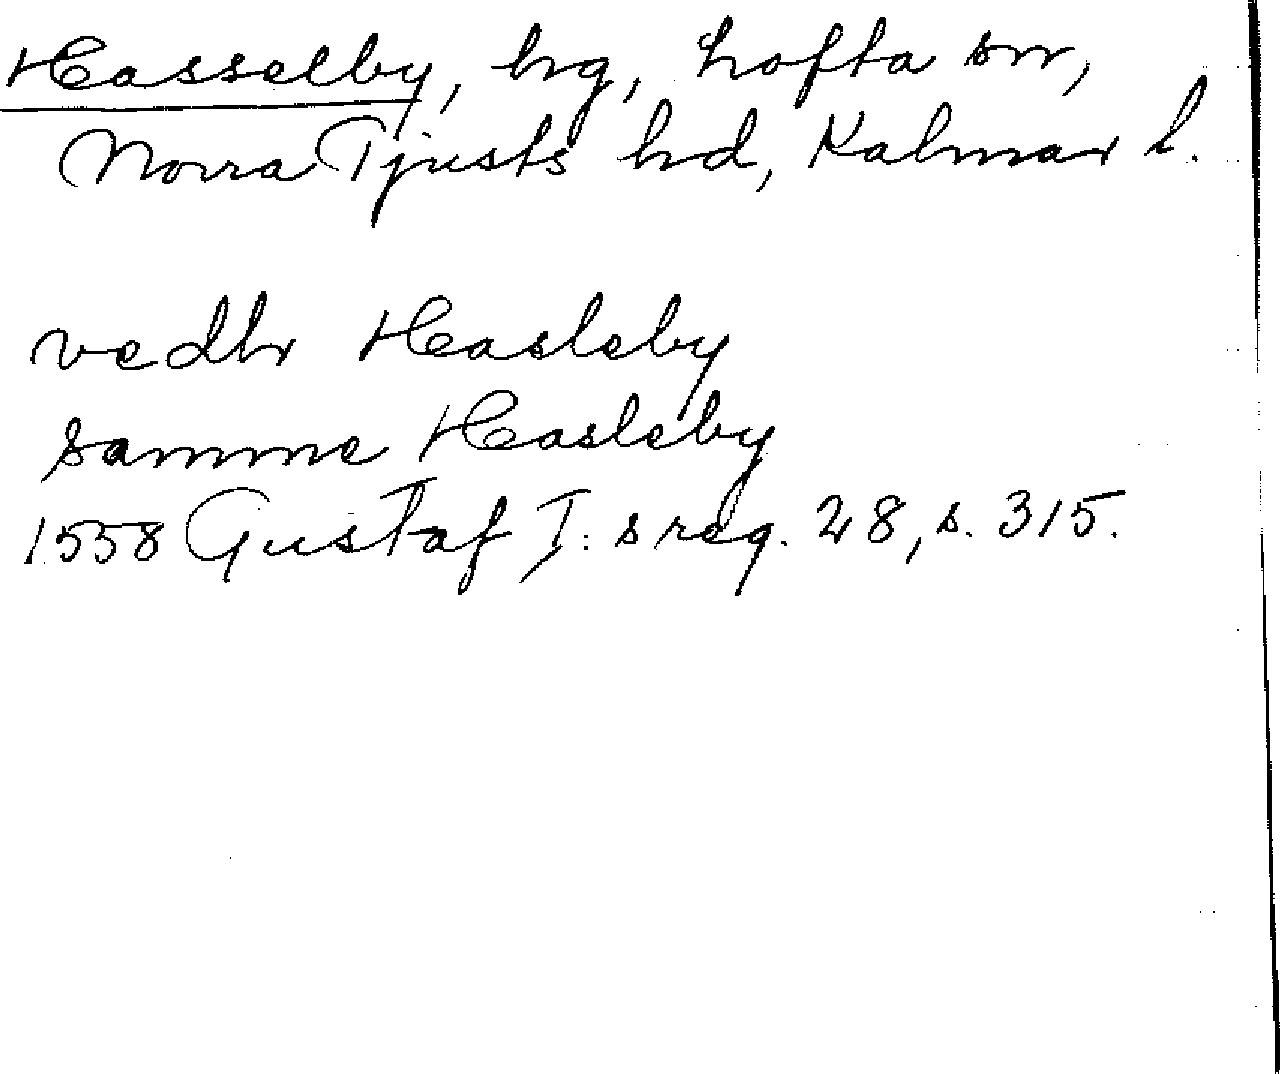 Hasselby, hg, Lofta sn,
Norra Tjusts hd, Kalmar l.
vedhr Hasleby
samme Hasleby
1558 Gustaf I:s reg. 28, s. 315.